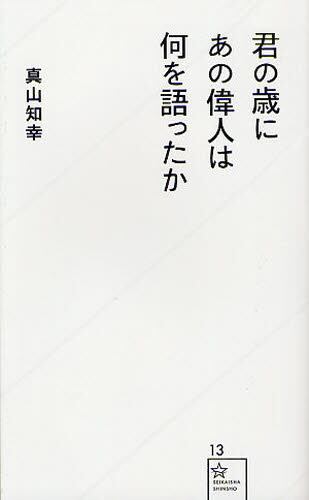 君の歳に
あの偉人は
何を語ったか
真山知幸
13
SEIKAISHA
SHINSHO